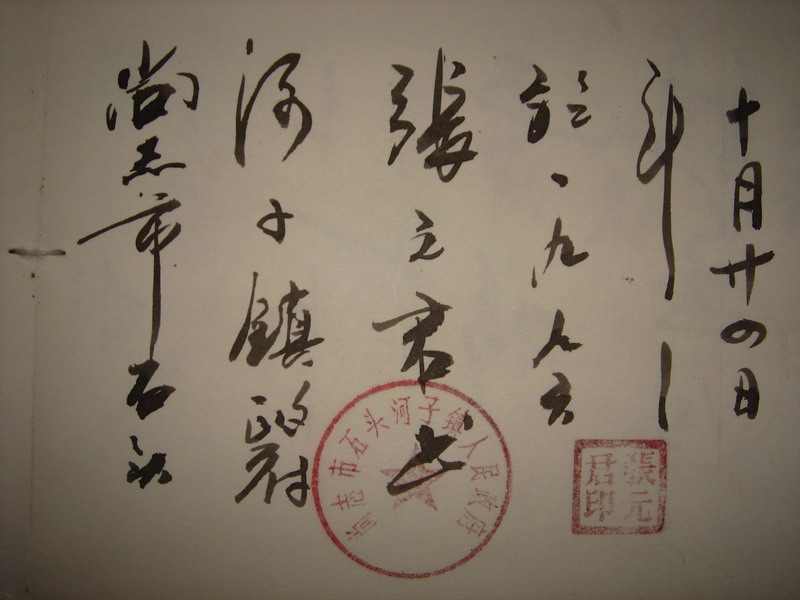 尚志市石头
河子鎮政府
張元君书
於一九九六
年
十月廿四日
尚志市石头河子镇人民政府
張元君印